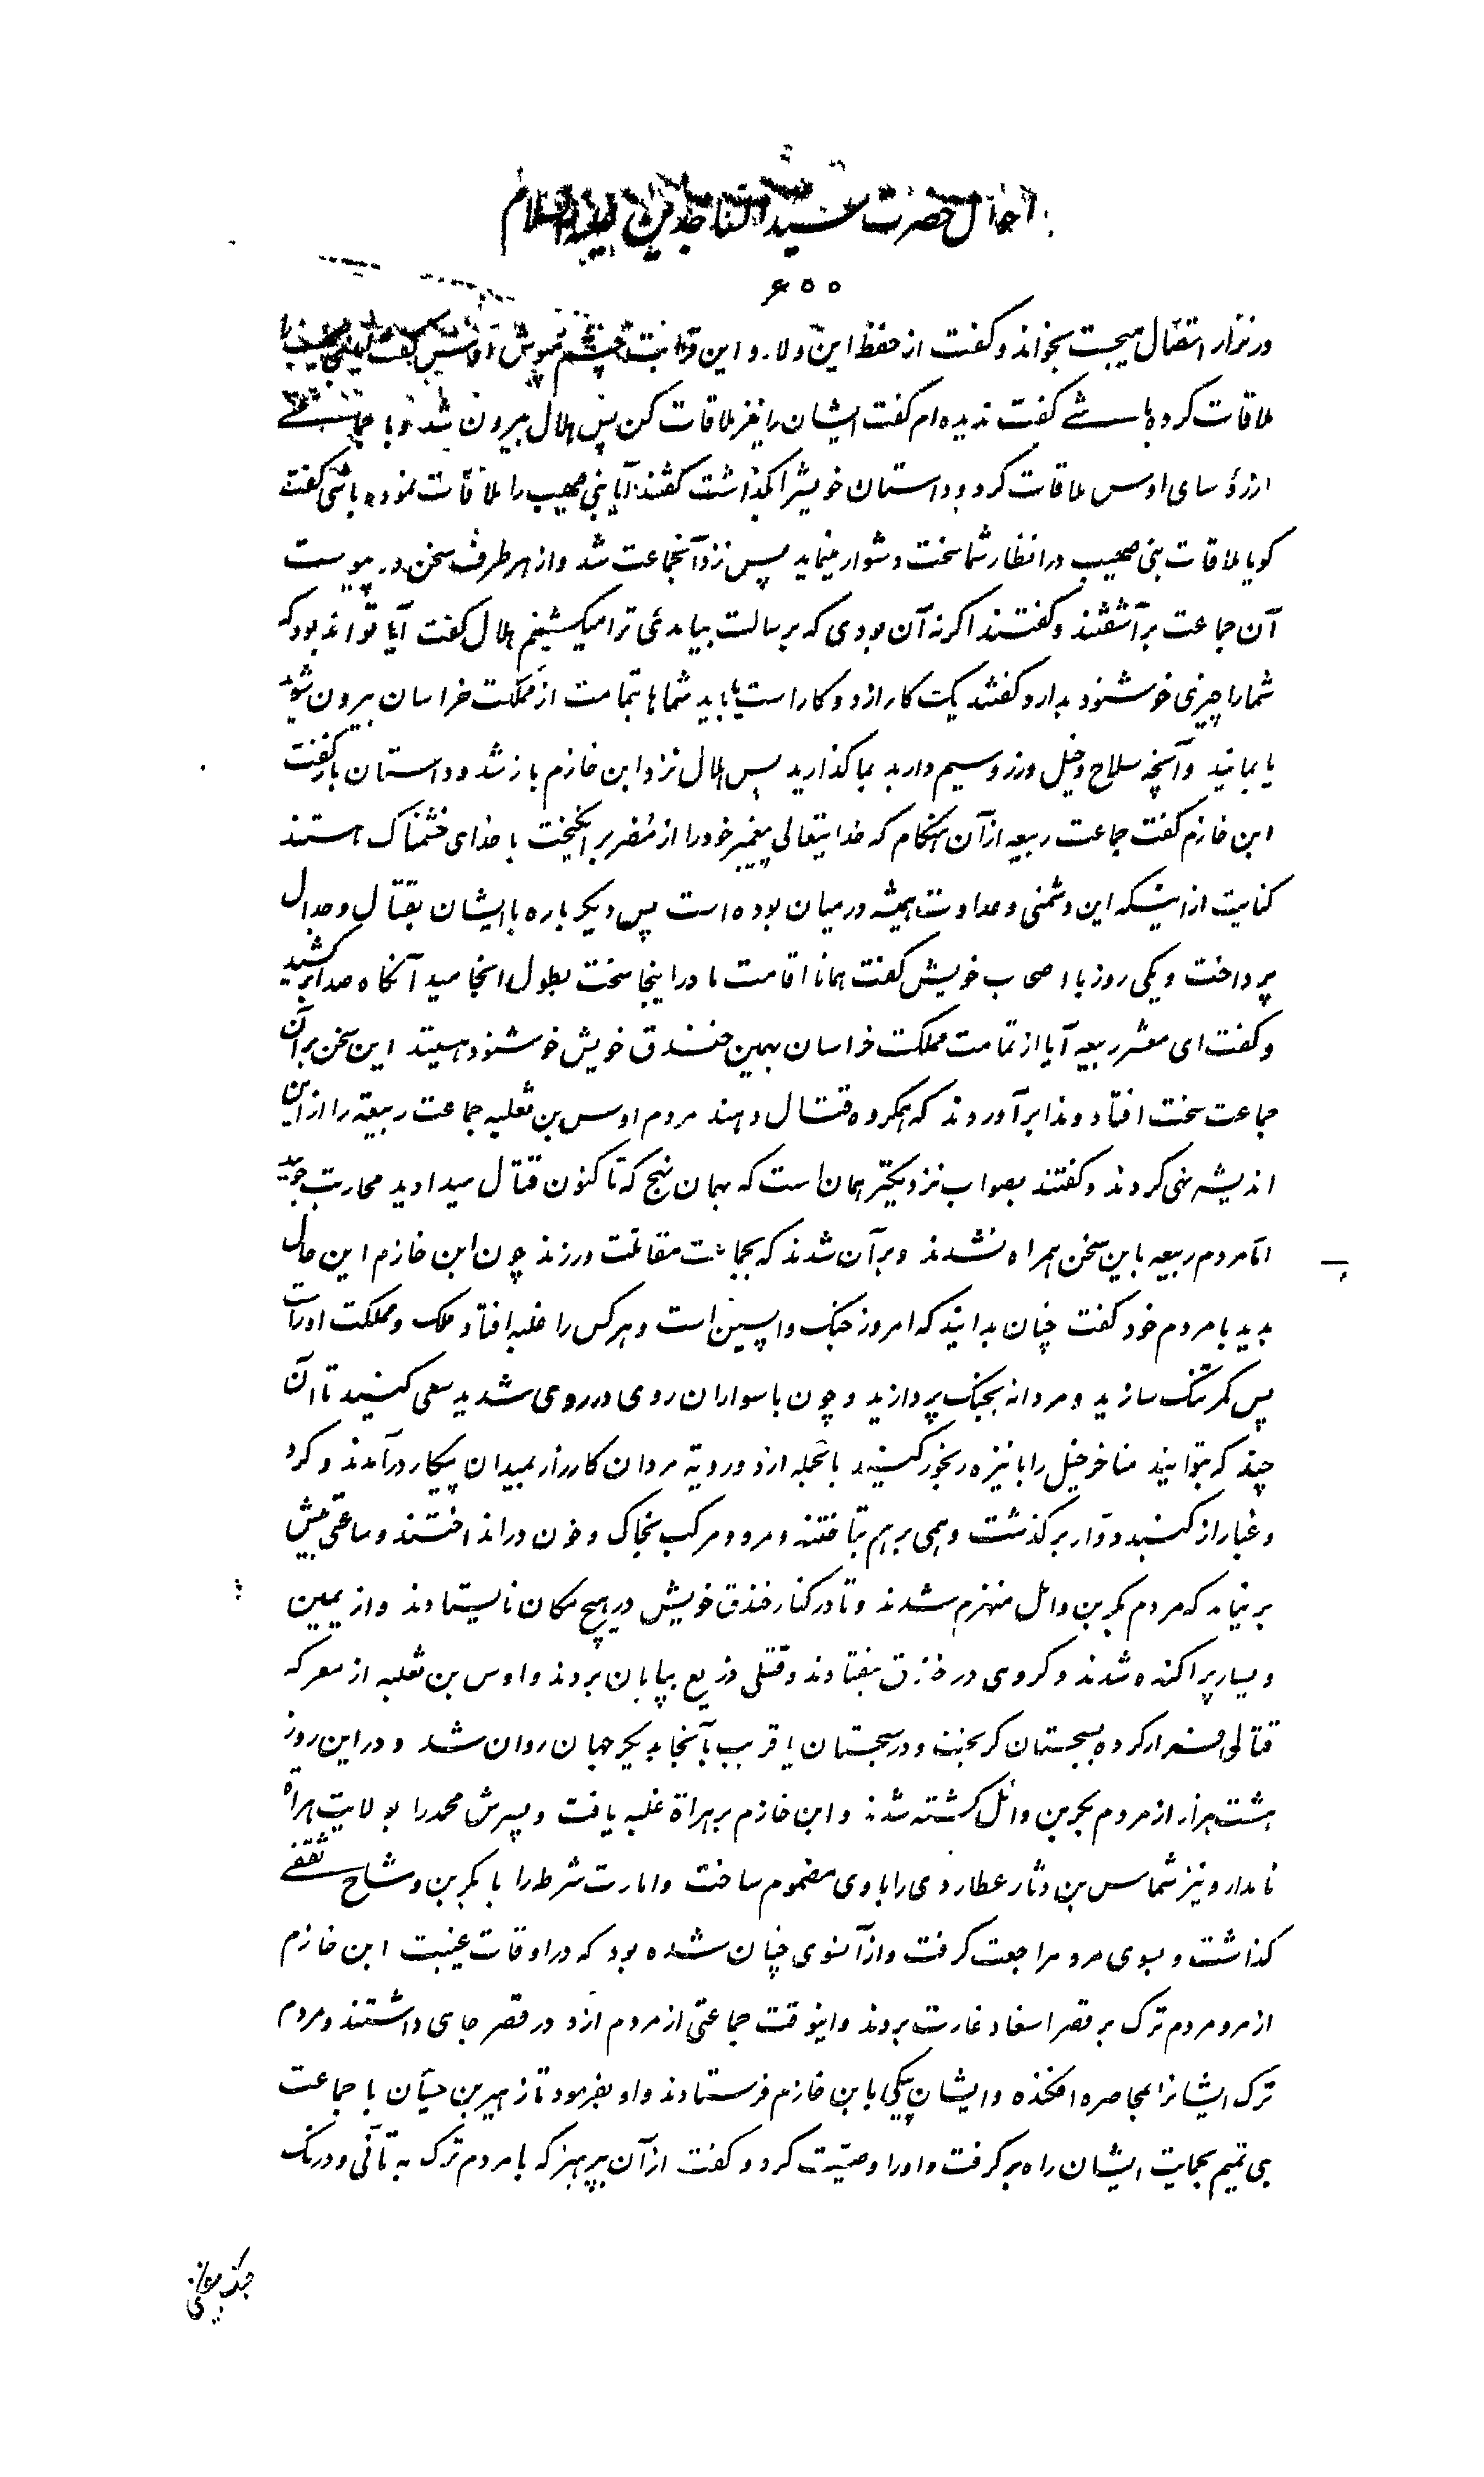 احوال حضرت سید الساجدین علیه السلام
۶۰۰
و نزار اتصال میجست بخواند و گفت از حفظ این ولا، و این قرابت چشم مپوش اوس گفت آیا بنی صهیب را
ملاقات کرده باشی گفت ندیده‌ام گفت ایشان را نیز ملاقات کن پس هلال بیرون شد و با جماعتی
از رؤسای اوس ملاقات کرد و داستان خویشرا بگذاشت گفتند آیا بنی صهیب را ملاقات نموده باشی گفت
گویا ملاقات بنی صهیب در انظار شما سخت دشوار مینماید پس نزد آنجماعت شد و از هر طرف سخن در پیوست
آن جماعت بر آشفتند و گفتند اگر نه آن بودی که برسالت بیامدئی ترا میکشتیم هلال گفت آیا تواند بود که
شما را چیزی خوشنود بدارد گفتند یکت کار از دو کار است یا باید شماها بتمامت از مملکت خراسان بیرون شوید
یا بمانید و آنچه سلاح و خیل و زر و سیم دارید بما گذارید پس هلال نزد ابن خازم باز شد و داستان بازگفت
ابن خازم گفت جماعت ربیعه از آن هنگام که خدایتعالی پیغمبر خود را از مضر بر انگیخت با خدای خشمناک هستند
کنایت از اینکه این دشمنی و عداوت همیشه در میان بوده است پس دیگر باره با ایشان بقتال و جدال
پرداخت و یکی روز با اصحاب خویش گفت همانا اقامت ما در اینجا سخت بطول انجامید آنگاه صدا برکشید
و گفت ای معشر ربیعه آیا از تمامت مملکت خراسان بهمین خندق خویش خوشنود هستید این سخن بر آن
جماعت سخت افتاد و ندا برآوردند که همگروه قتال دهند مردم اوس بن ثعلبه جماعت ربیعه را از این
اندیشه نهی کردند و گفتند بصواب نزدیکتر همان است که بهمان نهج که تا کنون قتال میدادید محاربت جوئید
اما مردم ربیعه باین سخن همراه نشدند و بر آن شدند که بجماعت مقاتلت ورزند چون ابن خازم این حال
بدید با مردم خود گفت چنان بدانید که امروز جنگ واپسین است و هر کس را غلبه افتاد ملک و مملکت او راست
پس کمر تنگ سازید و مردانه بجنگ پردازید و چون با سواران روی در روی شدید سعی کنید تا آن
چند که بتوانید مناخر خیل را با نیزه رنجور کنید بالجمله از دو رویه مردان کارزار بمیدان پیکار درآمدند و گرد
و غبار از گنبد دوار برگذشت و همی بر هم بتاختند و مرد و مرکب بخاک و خون در انداختند و ساعتی بیش
بر نیامد که مردم بکر بن وائل منهزم شدند و تا در کنار خندق خویش در هیچ مکان نایستادند و از یمین
و یسار پراکنده شدند و گروهی در خندق بیفتادند و قتلی ذریع بپایان بردند و اوس بن ثعلبه از معرکه
قتالی فرار کرده بسجستان گریخت و در سجستان یا قریب بآنجا بدیگر جهان روان شد و در این روز
هشت هزار از مردم بکر بن وائل کشته شدند و ابن خازم بر هراة غلبه یافت و پسرش محمد را بولایت هراة
نامدار و نیز شماس بن دثار عطاردی را با وی مضموم ساخت و امارت شرطه را با بکر بن وشاح ثقفی
گذاشت و بسوی مرو مراجعت گرفت و از آنسوی چنان شده بود که در اوقات غیبت ابن خازم
از مرو مردم ترک بر قصر اسفاد غارت بردند و اینوقت جماعتی از مردم ازد در قصر جای داشتند و مردم
ترک ایشانرا بمحاصره افکنده و ایشان پیکی بابن خازم فرستادند و او بفرمود تا زهیر بن حیان با جماعت
بنی تمیم بحمایت ایشان راه بر گرفت و او را وصیت کرد و گفت از آن بپرهیز که با مردم ترک به تأنی و درنگ